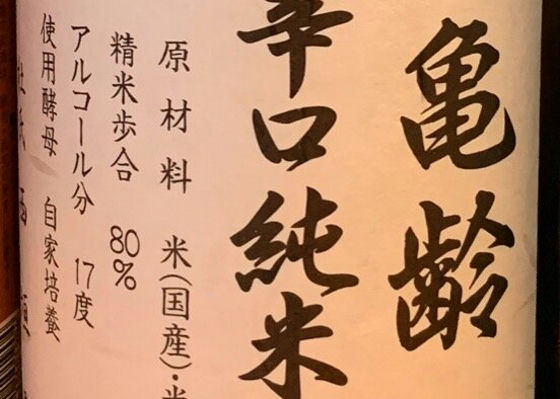 亀齢
辛口純米
原材料 米(国産)・米
精米歩合 80%
アルコール分 17度
使用酵母 自家培養
杜氏